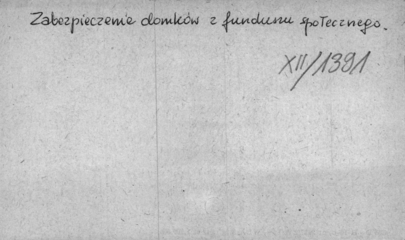 Zabezpieczenie domków z funduszu społecznego.
XII/1391